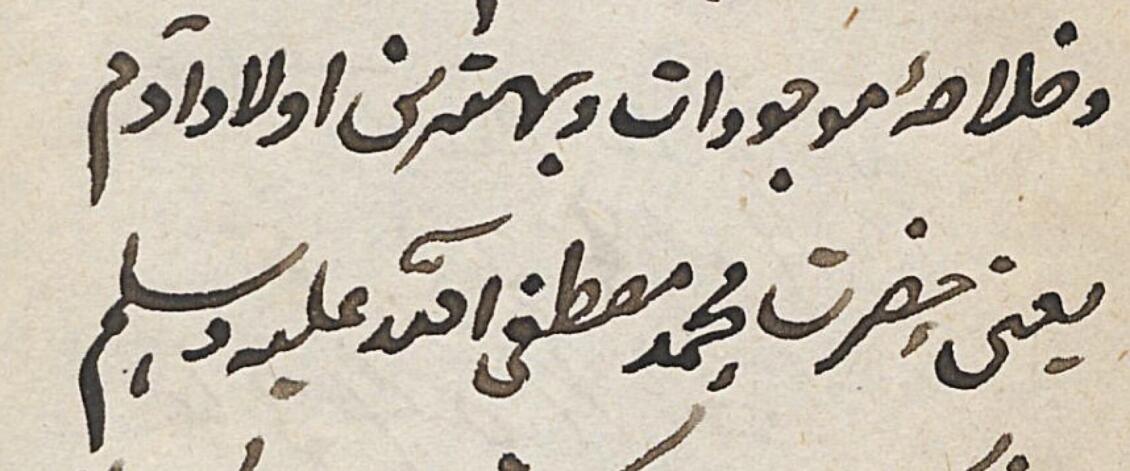 و خلاصهٔ موجودات و بهترین اولاد آدم
یعنی حضرت محمد مصطفی الله علیه وسلم